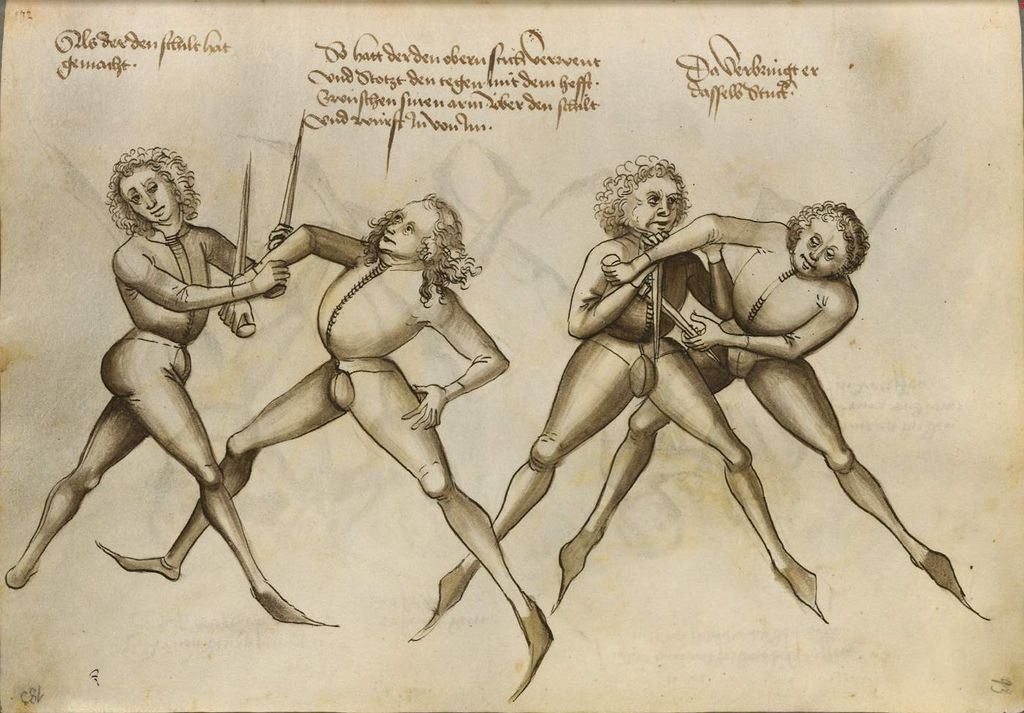 Als der den schilt hat
gemacht.
So hatt der den obern stich verwent
vnd Stotzt den tegen mit dem hefft.
Zwuschen sinen arm vber den schilt
vnd wurft In von Im.
Da verbringt er
dasselb Stuck.